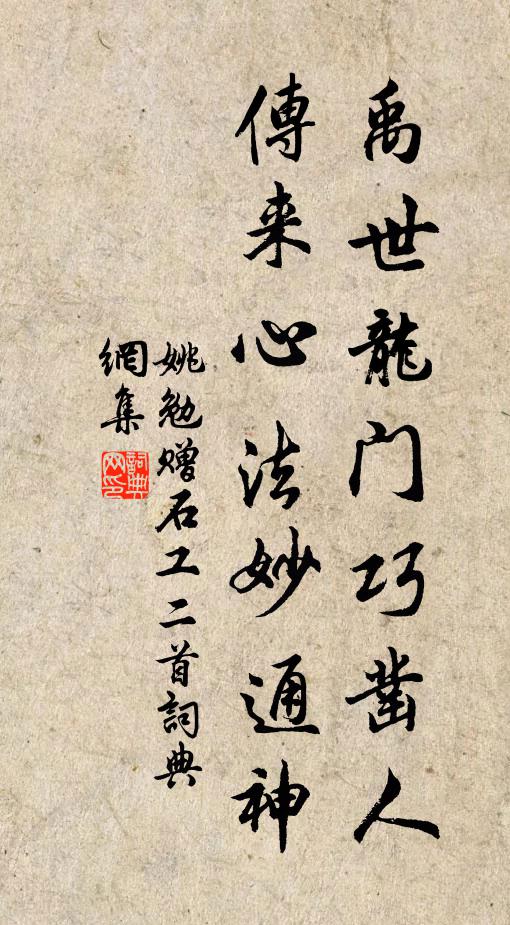 禹世龍门巧凿人
傳来心法妙通神
姚勉赠石工二首詞典
網集
詞典
网印